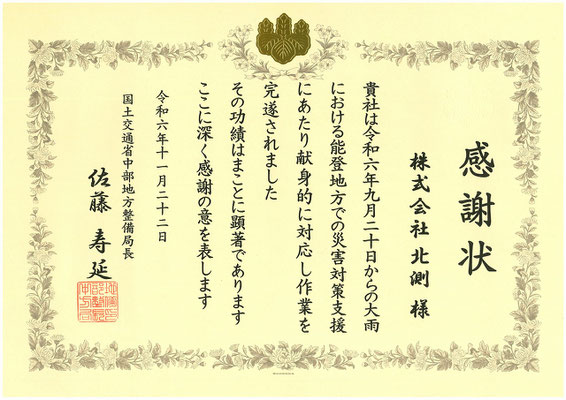 感謝状
株式会社 北測 様
貴社は令和六年九月二十日からの大雨
における能登地方での災害対策支援
にあたり献身的に対応し作業を
完遂されました
その功績はまことに顕著であります
ここに深く感謝の意を表します
令和六年十一月二十二日
国土交通省中部地方整備局長
佐藤 寿延